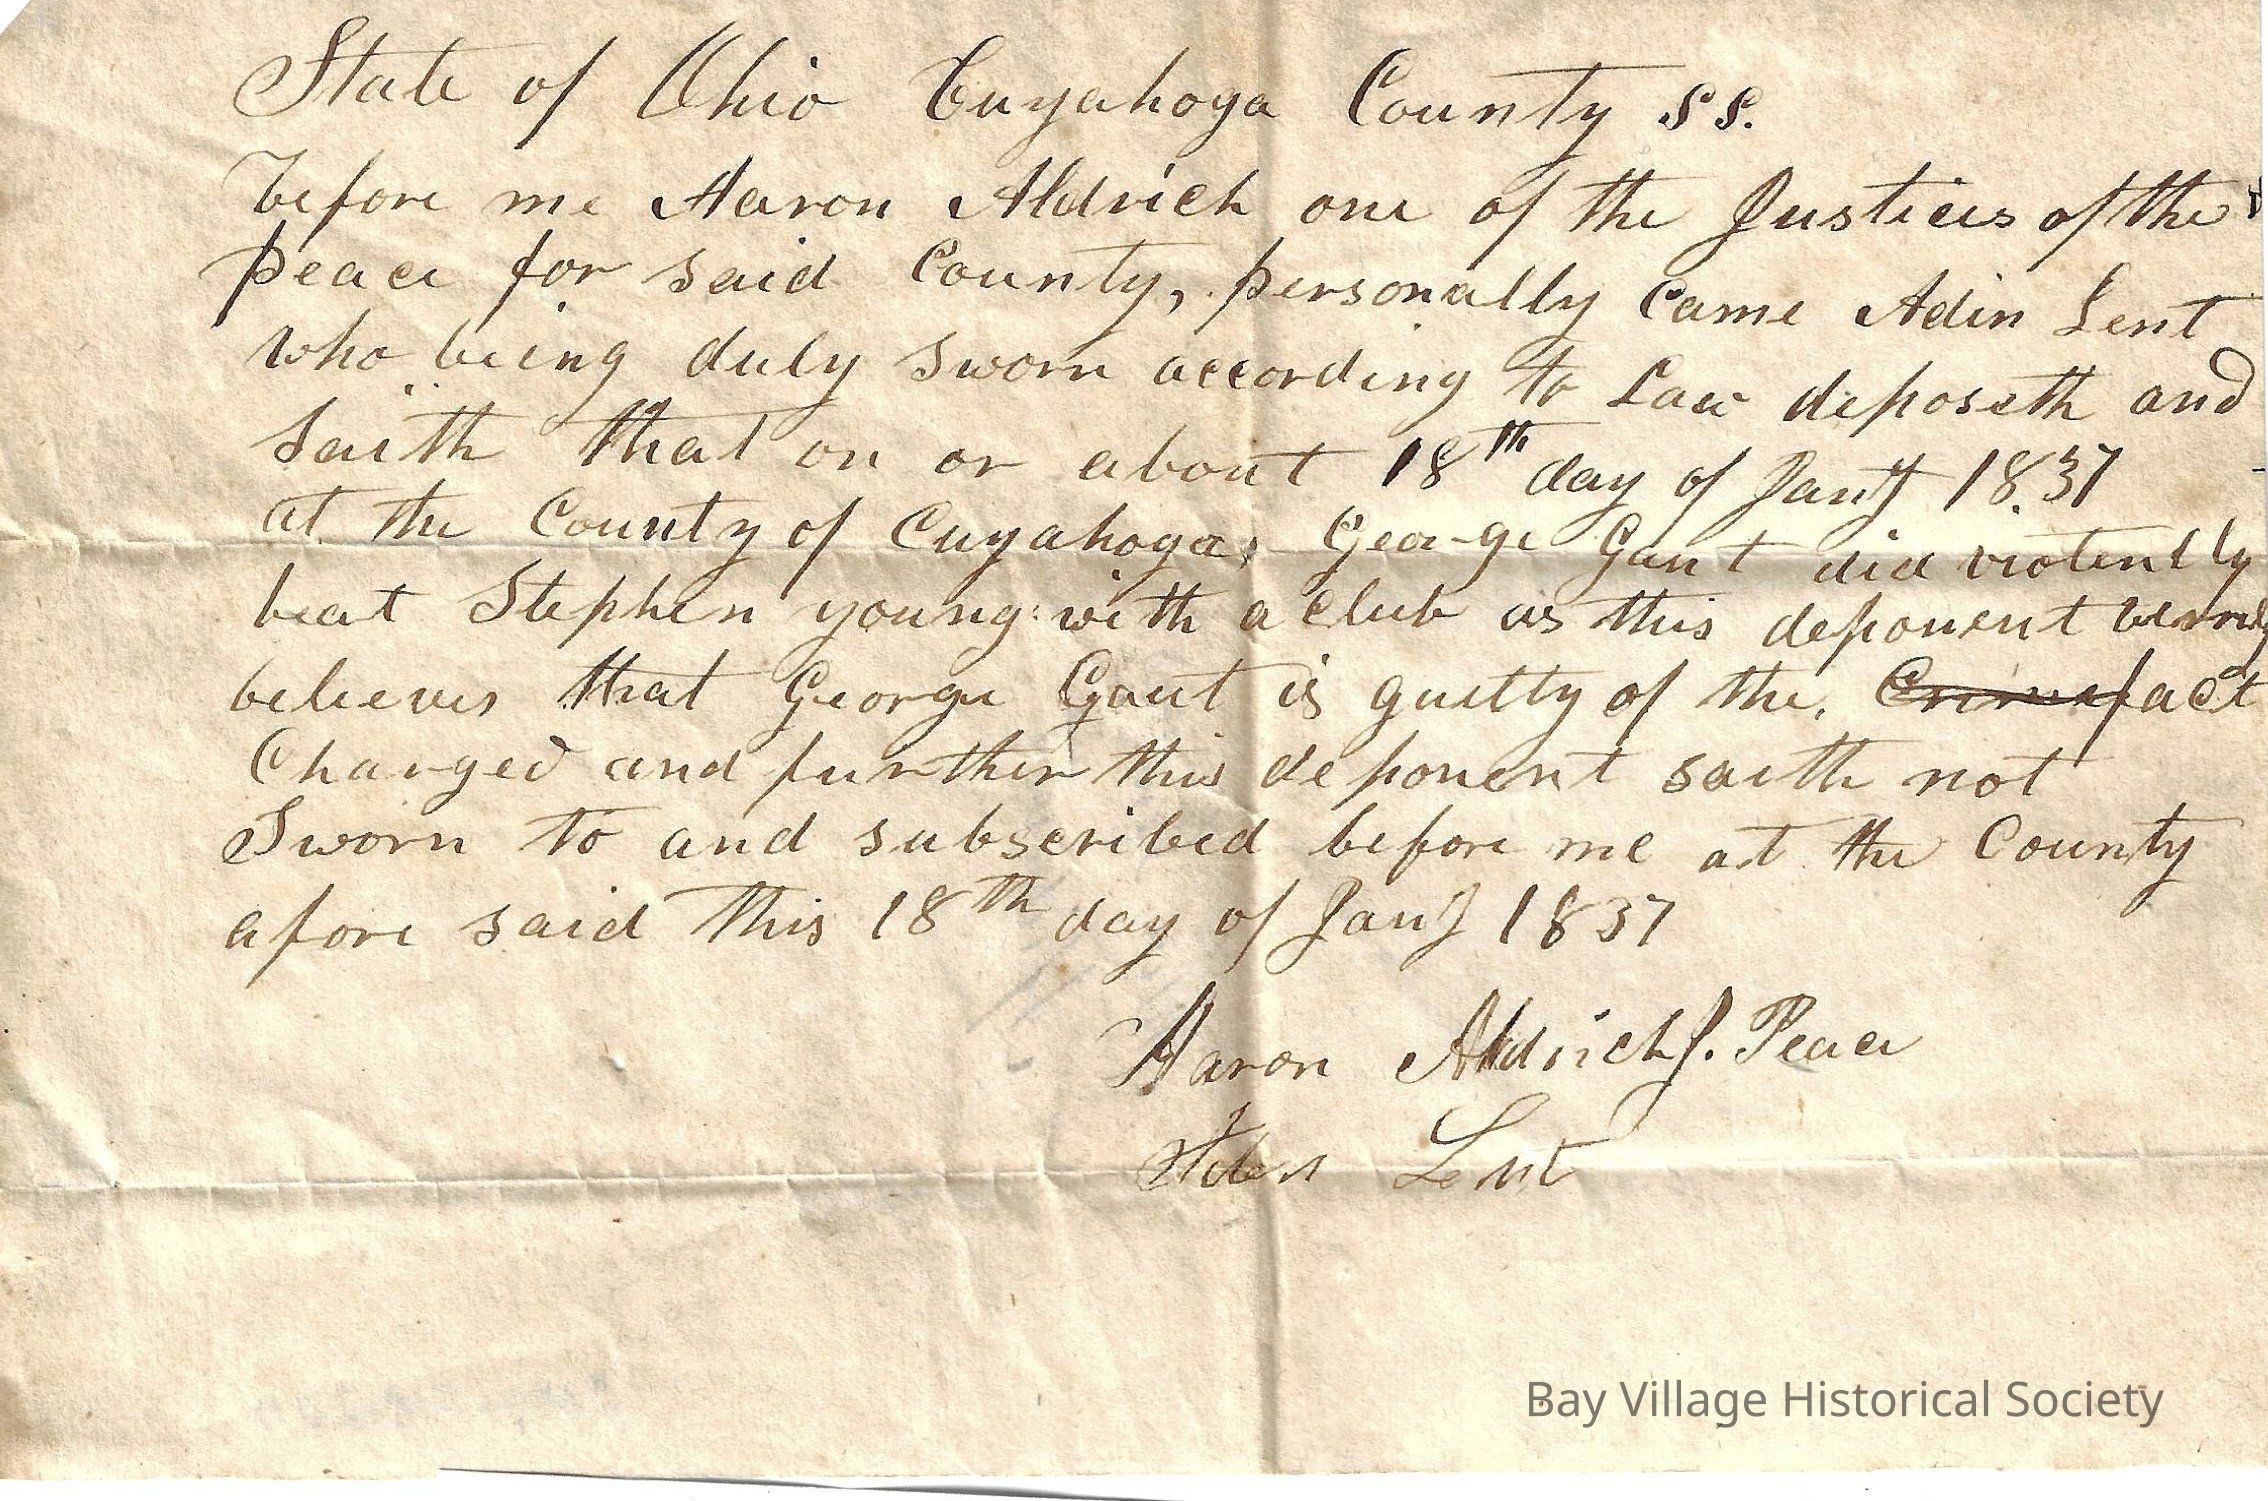 State of Ohio Cuyahoga County SS.
before me Aaron Aldrich one of the Justices of the
peace for said County, personally Came Adin Lent
who being duly sworn according to Law deposeth and
saith that on or about 18th day of Jany 1837
at the County of Cuyahoga, George Gant did violently
beat Stephen young with a club as this deponent verily
believes that George Gant is guilty of the, Crime fact
Charged and further this deponent saith not
Sworn to and subscribed before me at the County
afore said this 18th day of Jany 1837
Aaron Aldrich J. Peace
Aden Lent
Bay Village Historical Society